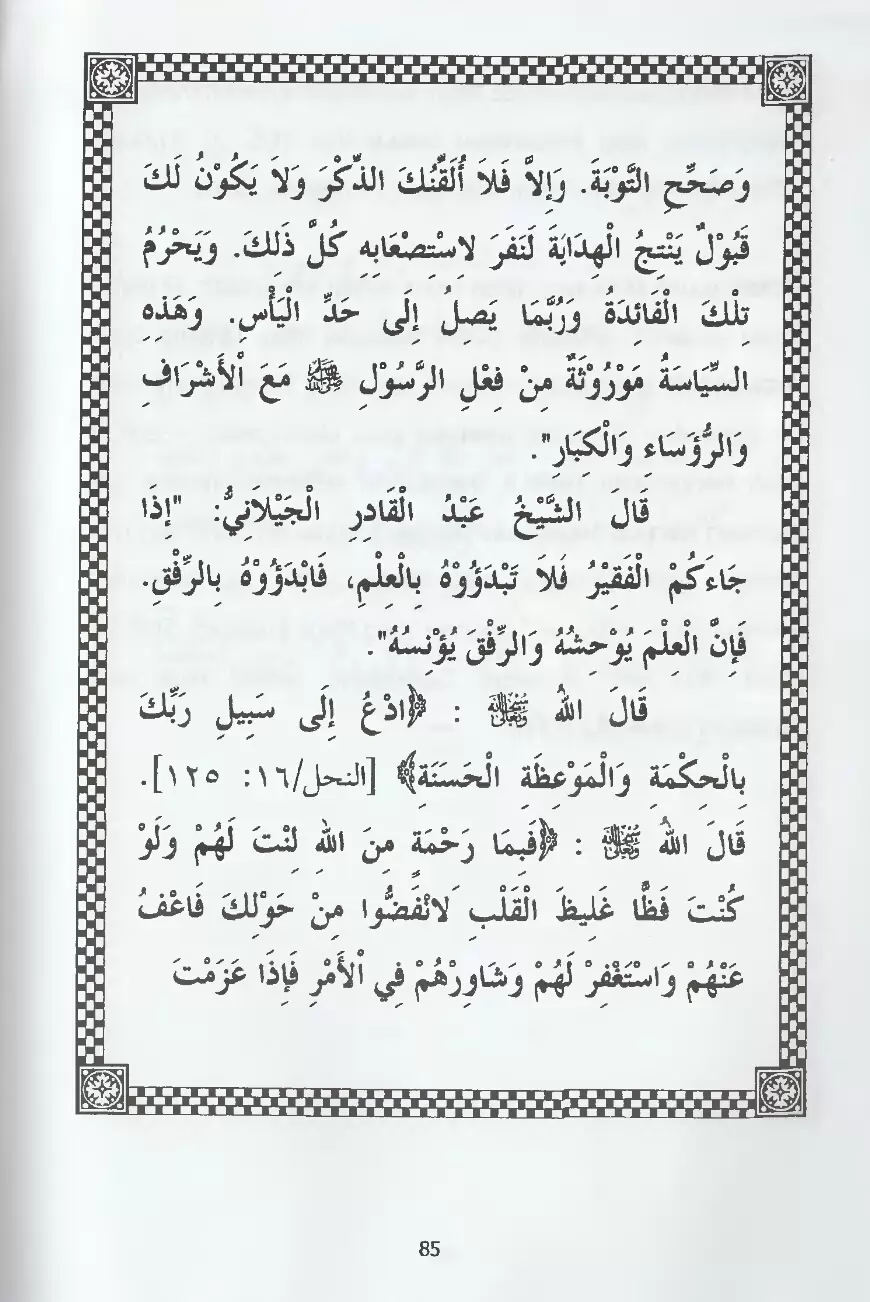 وَصَحِّحِ التَّوْبَةَ. وَإِلاَّ فَلاَ أُلَقِّنُكَ الذِّكْرَ وَلاَ يَكُوْنُ لَكَ
قَبُوْلٌ يَنْتِجُ الْهِدَايَةَ لَنَفَرَ لاِسْتِصْعَابِهِ كُلَّ ذَلِكَ. وَيَحْرُمُ
تِلْكَ الْفَائِدَةُ وَرُبَّمَا يَصِلُ إِلَى حَدِّ الْيَأْسِ. وَهَذِهِ
السِّيَاسَةُ مَوْرُوْثَةٌ مِنْ فِعْلِ الرَّسُوْلِ ﷺ مَعَ اْلأَشْرَافِ
وَالرُّؤَسَاءِ وَالْكِبَارِ".
قَالَ الشَّيْخُ عَبْدُ الْقَادِرِ الْجَيْلاَنِيُّ: "إِذَا
جَاءَكُمْ الْفَقِيْرُ فَلاَ تَبْدَؤُوْهُ بِالْعِلْمِ، فَابْدَؤُوْهُ بِالرِّفْقِ.
فَإِنَّ الْعِلْمَ يُوْحِشُهُ وَالرِّفْقَ يُؤْنِسُهُ".
قَالَ اللهُ سُبْحَانَهُ وَتَعَالَى : ﴿ادْعُ إِلَى سَبِيلِ رَبِّكَ
بِالْحِكْمَةِ وَالْمَوْعِظَةِ الْحَسَنَةِ﴾ [النحل/١٦: ١٢٥].
قَالَ اللهُ سُبْحَانَهُ وَتَعَالَى : ﴿فَبِمَا رَحْمَةٍ مِنَ اللهِ لِنْتَ لَهُمْ وَلَوْ
كُنْتَ فَظًّا غَلِيظَ الْقَلْبِ لاَنْفَضُّوا مِنْ حَوْلِكَ فَاعْفُ
عَنْهُمْ وَاسْتَغْفِرْ لَهُمْ وَشَاوِرْهُمْ فِي اْلأَمْرِ فَإِذَا عَزَمْتَ
85